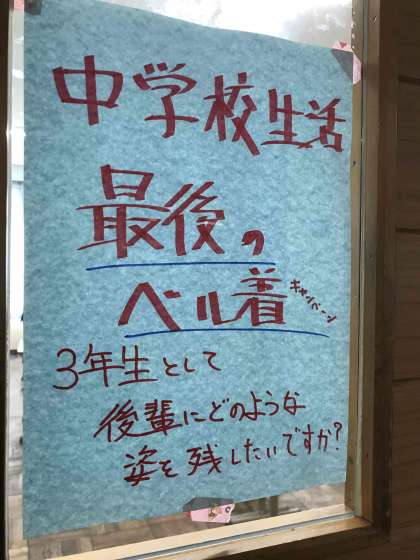 中学校生活
最後の
ベル着 キャンペーン
3年生として
後輩にどのような
姿を残したいですか?